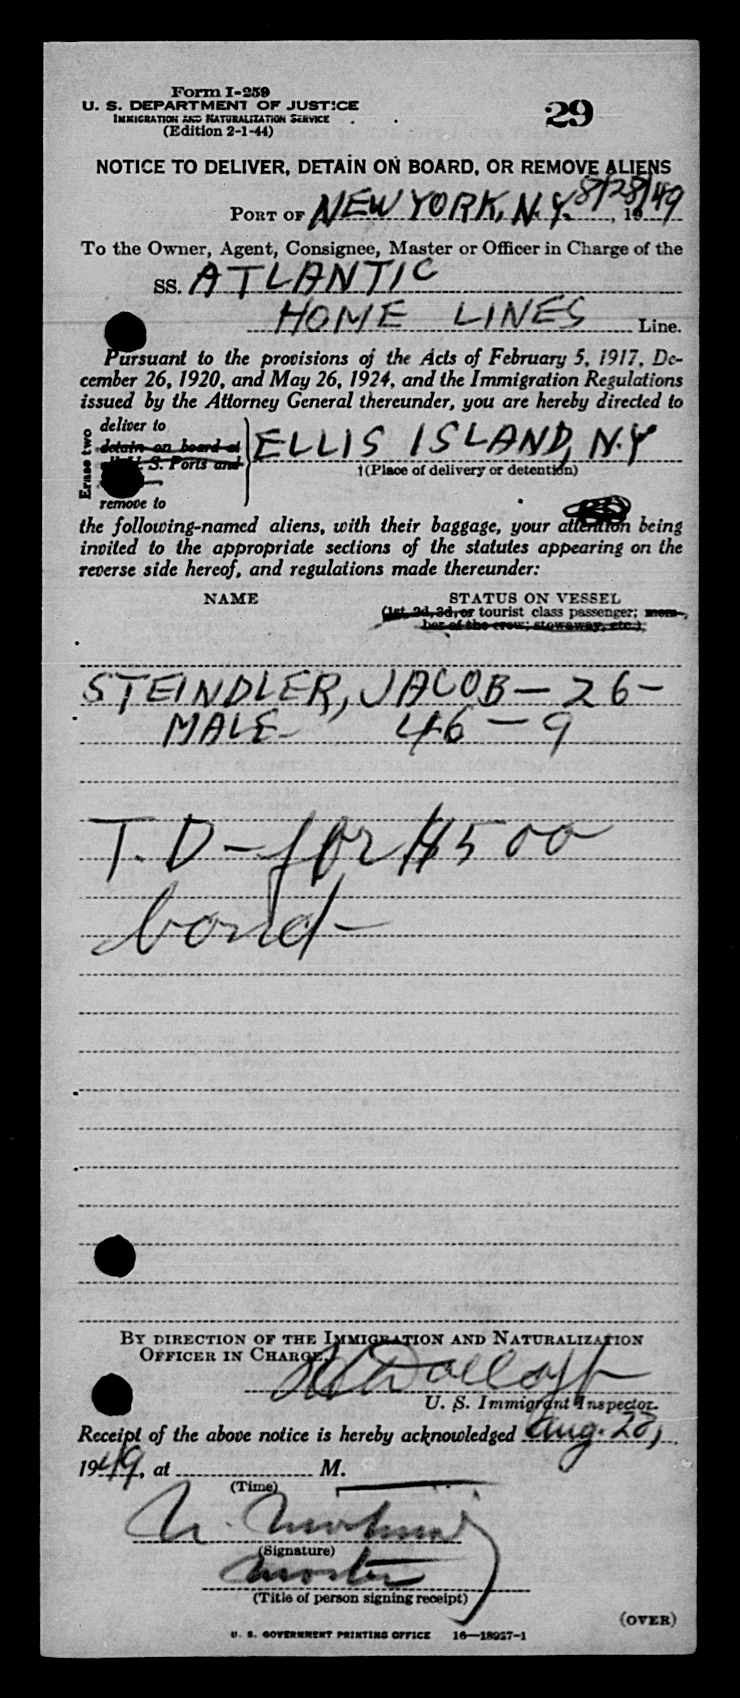 Form I-259
U. S. DEPARTMENT OF JUSTICE
IMMIGRATION AND NATURALIZATION SERVICE
(Edition 2-1-44)
29
NOTICE TO DELIVER, DETAIN ON BOARD, OR REMOVE ALIENS
PORT OF NEW YORK, N.Y. 8/28/, 1949
To the Owner, Agent, Consignee, Master or Officer in Charge of the
SS. ATLANTIC
HOME LINES Line.
Pursuant to the provisions of the Acts of February 5, 1917, De-
cember 26, 1920, and May 26, 1924, and the Immigration Regulations
issued by the Attorney General thereunder, you are hereby directed to
Erase two
deliver to
detain on board at
U. S. Ports and
remove to
ELLIS ISLAND, N.Y
†(Place of delivery or detention)
the following-named aliens, with their baggage, your attention being
invited to the appropriate sections of the statutes appearing on the
reverse side hereof, and regulations made thereunder:
NAME STATUS ON VESSEL
(1st, 2d, 3d, or tourist class passenger; mem-
ber of the crew; stowaway, etc.)
STEINDLER, JACOB - 26 -
MALE - 46 - 9
T. D - for $500
bond -
BY DIRECTION OF THE IMMIGRATION AND NATURALIZATION
OFFICER IN CHARGE.
U. S. Immigrant Inspector.
Receipt of the above notice is hereby acknowledged Aug. 28,
1949, at M.
(Time)
(Signature)
Master
(Title of person signing receipt)
(OVER)
U. S. GOVERNMENT PRINTING OFFICE 16—18927-1